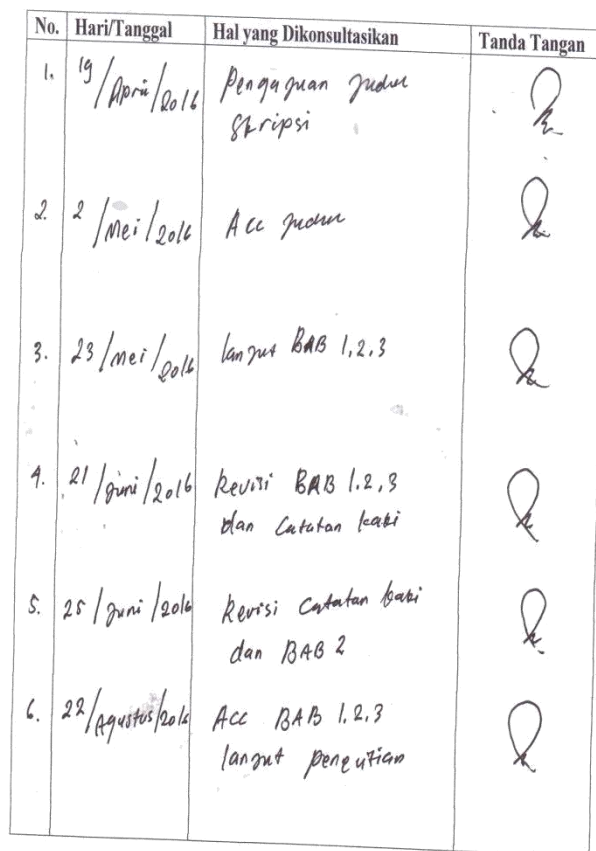 No. Hari/Tanggal Hal yang Dikonsultasikan Tanda Tangan
1. 19/April/2016 Pengajuan judul
Skripsi
2. 2/Mei/2016 Acc judul
3. 23/Mei/2016 lanjut BAB 1,2,3
4. 21/Juni/2016 Revisi BAB 1.2,3
dan Catatan kaki
5. 25/Juni/2016 Revisi Catatan kaki
dan BAB 2
6. 22/Agustus/2016 Acc BAB 1.2.3
lanjut penelitian